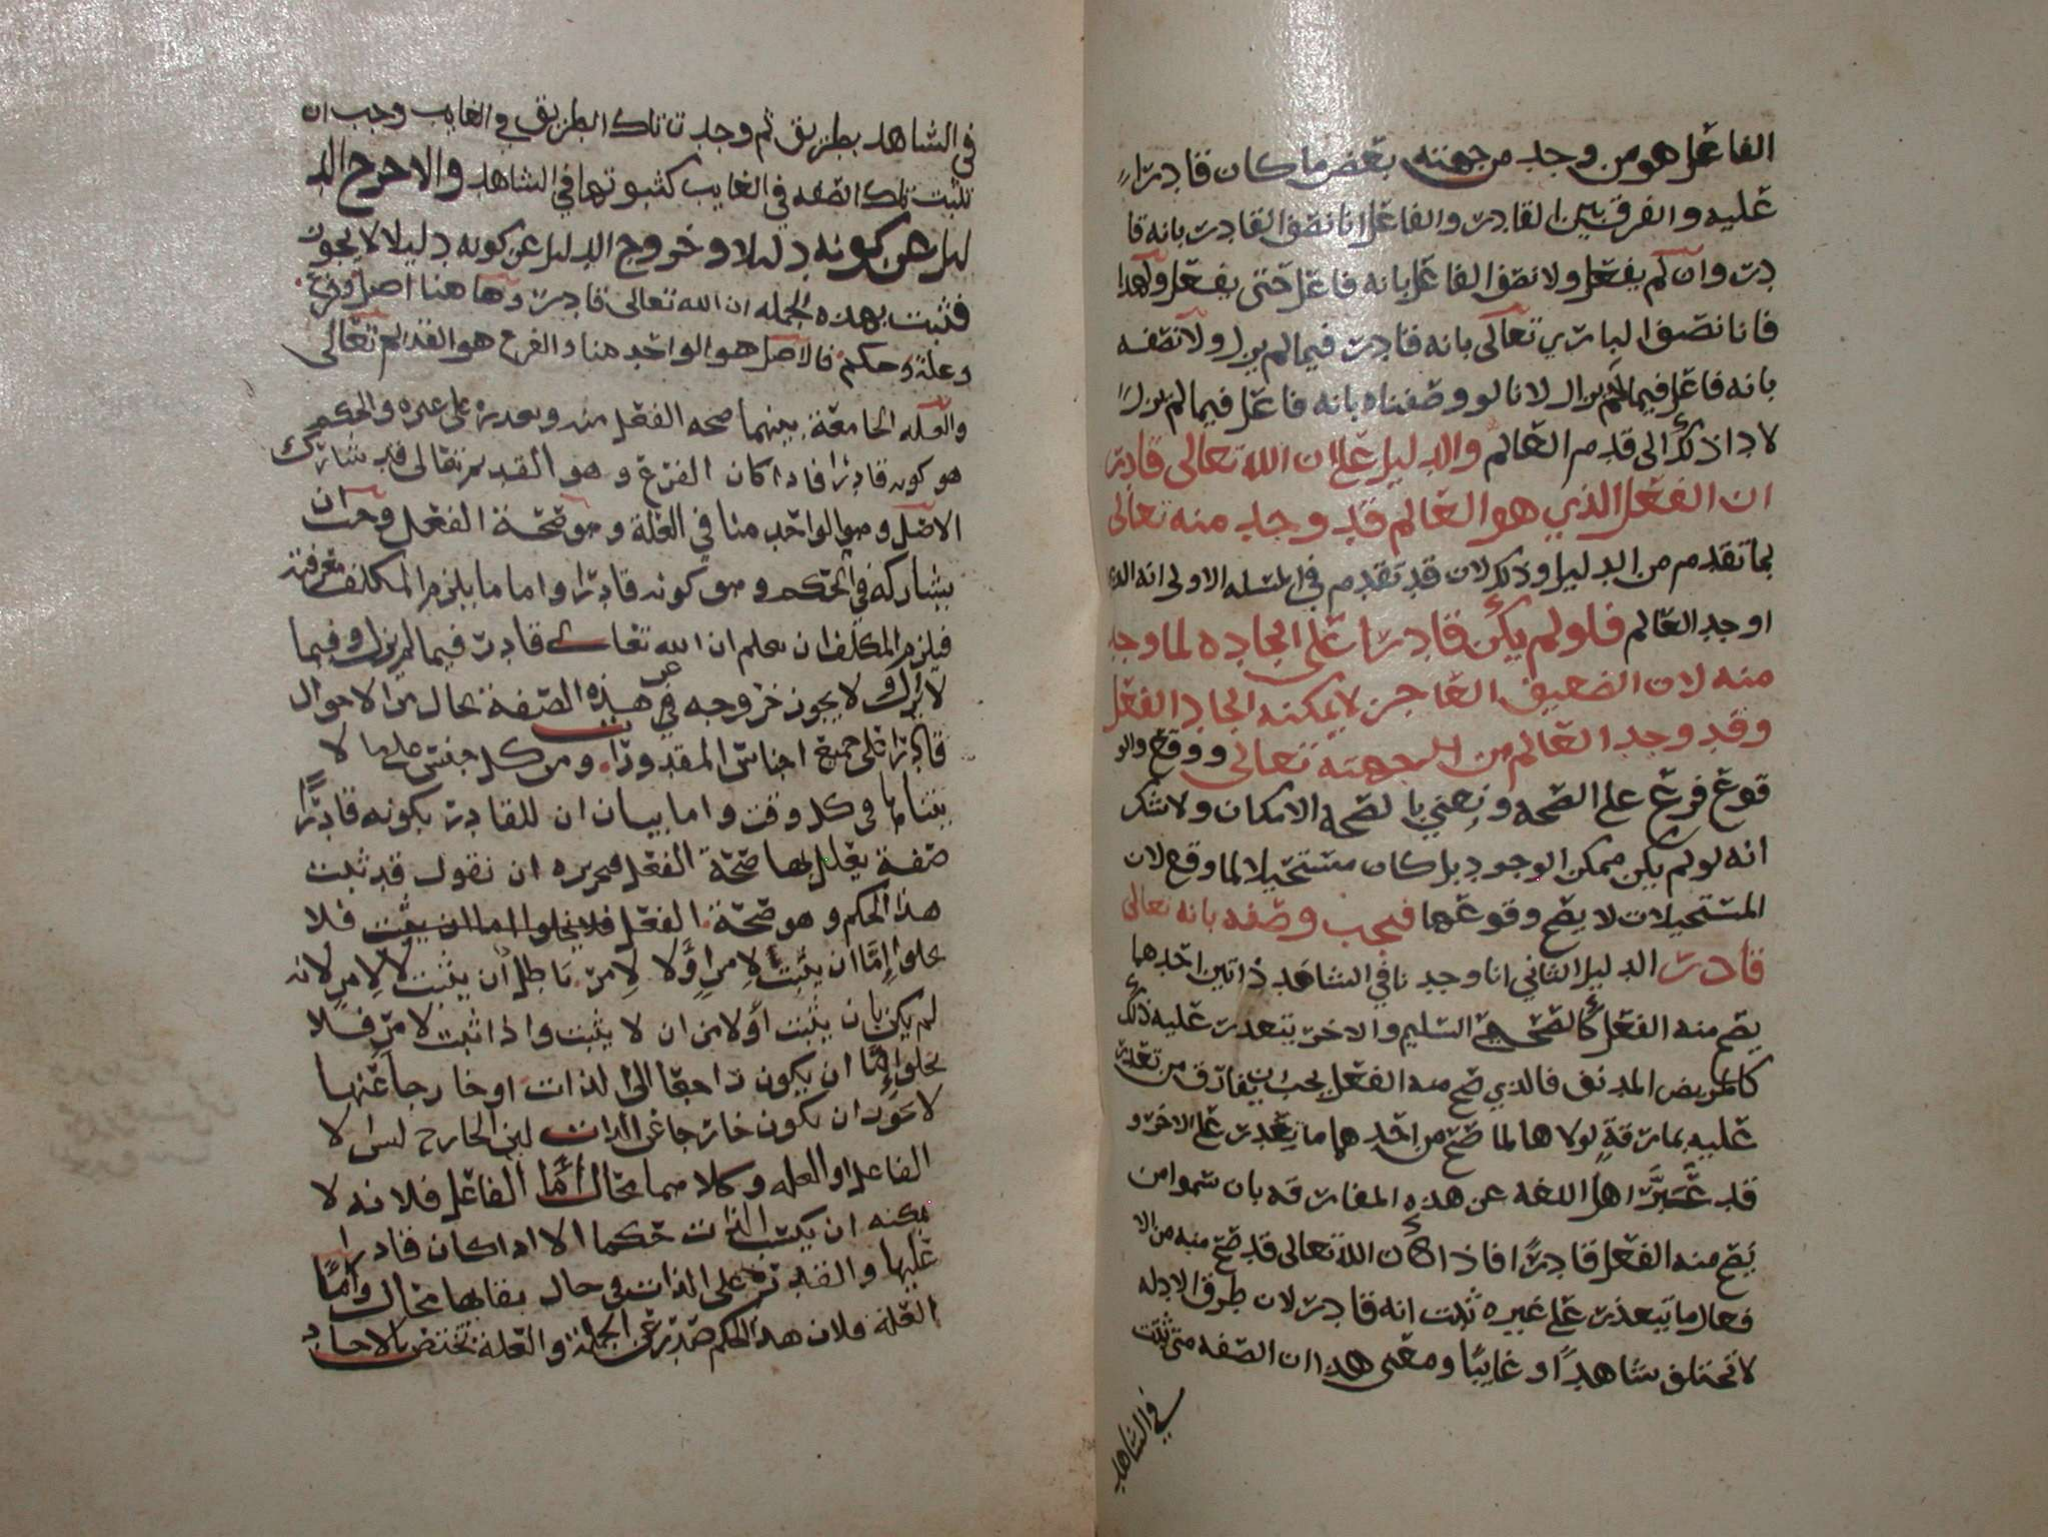 الفاعل هو من وجد من جهته بعض ما كان قادرًا
عليه والفرق بين القادر والفاعل انا نصف القادر بانه قا
در وان لم يفعل ولا نصف الفاعل بانه فاعل حتى يفعل ولهذا
فانا نصف الباري تعالى بانه قادر فيما لم يزل ولا نصفه
بانه فاعل فيما لم يزال لانا لو وصفناه بانه فاعل فيما لم يزل
لادا ذلك الى قدم العالم والدليل على ان الله تعالى قادر
ان الفعل الذي هو العالم قد وجد منه تعالى
بما تقدم من الدليل وذلك لان قد تقدم في المسله الاولى انه الذي
اوجد العالم فلو لم يكن قادرا على ايجاده لما وجد
منه لان الضعيف العاجز لا يمكنه ايجاد الفعل
وقد وجد العالم من جهته تعالى ووقع والو
قوع فرع على الصحه ونعني بالصحه الامكان ولا شك
انه لو لم يكن ممكن الوجود بل كان مستحيلا لما وقع لان
المستحيلات لا يصح وقوعها فيجب وصفه بانه تعالى
قادر الدليل الثاني انا وجدنا في الشاهد ذاتين احدهما
يصح منه الفعل كالصحيح السليم والاخر يتعذر عليه ذلك
كالمريض المدنف فالذي صح منه الفعل يجب ان يفارق من تعذر
عليه بمفارقة لولاها لما صح من احدهما ما يتعذر على الاخر و
قد عبَّر اهل اللغه عن هذه المفارقه بان سموا من
يصح منه الفعل قادرًا فاذا كان الله تعالى قد صح منه من الا
فعال ما يتعذر على غيره ثبت انه قادر لان طرق الادله
لا تختلف شاهدًا وغايبًا ومعنى هذا ان الصفه متى ثبتت
في الشاهد
في الشاهد بطريق ثم وجدت تلك الطريق في الغايب وجب ان
تثبت تلك الصفه في الغايب كثبوتها في الشاهد والا خرج الد
ليل عن كونه دليلا وخروج الدليل عن كونه دليلا لا يجوز
فثبت بهذه الجمله ان الله تعالى قادر وها هنا اصل وفرع
وعلة وحكم فالاصل هو الواحد منا والفرع هو القديم تعالى
والعله الجامعة بينهما صحه الفعل منه وتعذره على غيره والحكم
هو كونه قادرا فاذا كان الفرع وهو القديم تعالى قد شارك
الاصل وهو الواحد منا في العلة وهو صحة الفعل وجب ان
يشاركه في الحكم وهو كونه قادرا واما ما يلزم المكلف معرفته
فيلزم المكلف ان يعلم ان الله تعالى قادر فيما لم يزل وفيما
لا يزال ولا يجوز خروجه عن هذه الصفة بحال من الاحوال
قادرا على جميع اجناس المقدورات ومن كل جنس على ما لا
يتناها في كل وقت واما بيان ان للقادر بكونه قادرًا
صفة يعلل بها صحة الفعل فتحريره ان نقول قد ثبت
هذا الحكم وهو صحة الفعل فلا يخلوا اما ان يثبت فلا
يخلو إمّا ان يثبت لامرٍ أو لا لامر باطل ان يثبت لا لامرٍ لانه
لم يكن بان يثبت أولا من ان لا يثبت واذا ثبت لامر فلا
يخلو إمّا ان يكون راجعا الى الذات او خارجا عنها
لا يجوز ان يكون خارجا عن الذات لان الخارج ليس الا
الفاعل او العله وكلاهما محال أمّا الفاعل فلانه لا
يمكنه ان يكسب الذات حكما الا اذا كان قادرا
عليها والقدرة على الذات في حال بقايها محال وأمّا
العلة فلان هذا الحكم صدر عن الجملة والعلة تختص بالاحاد